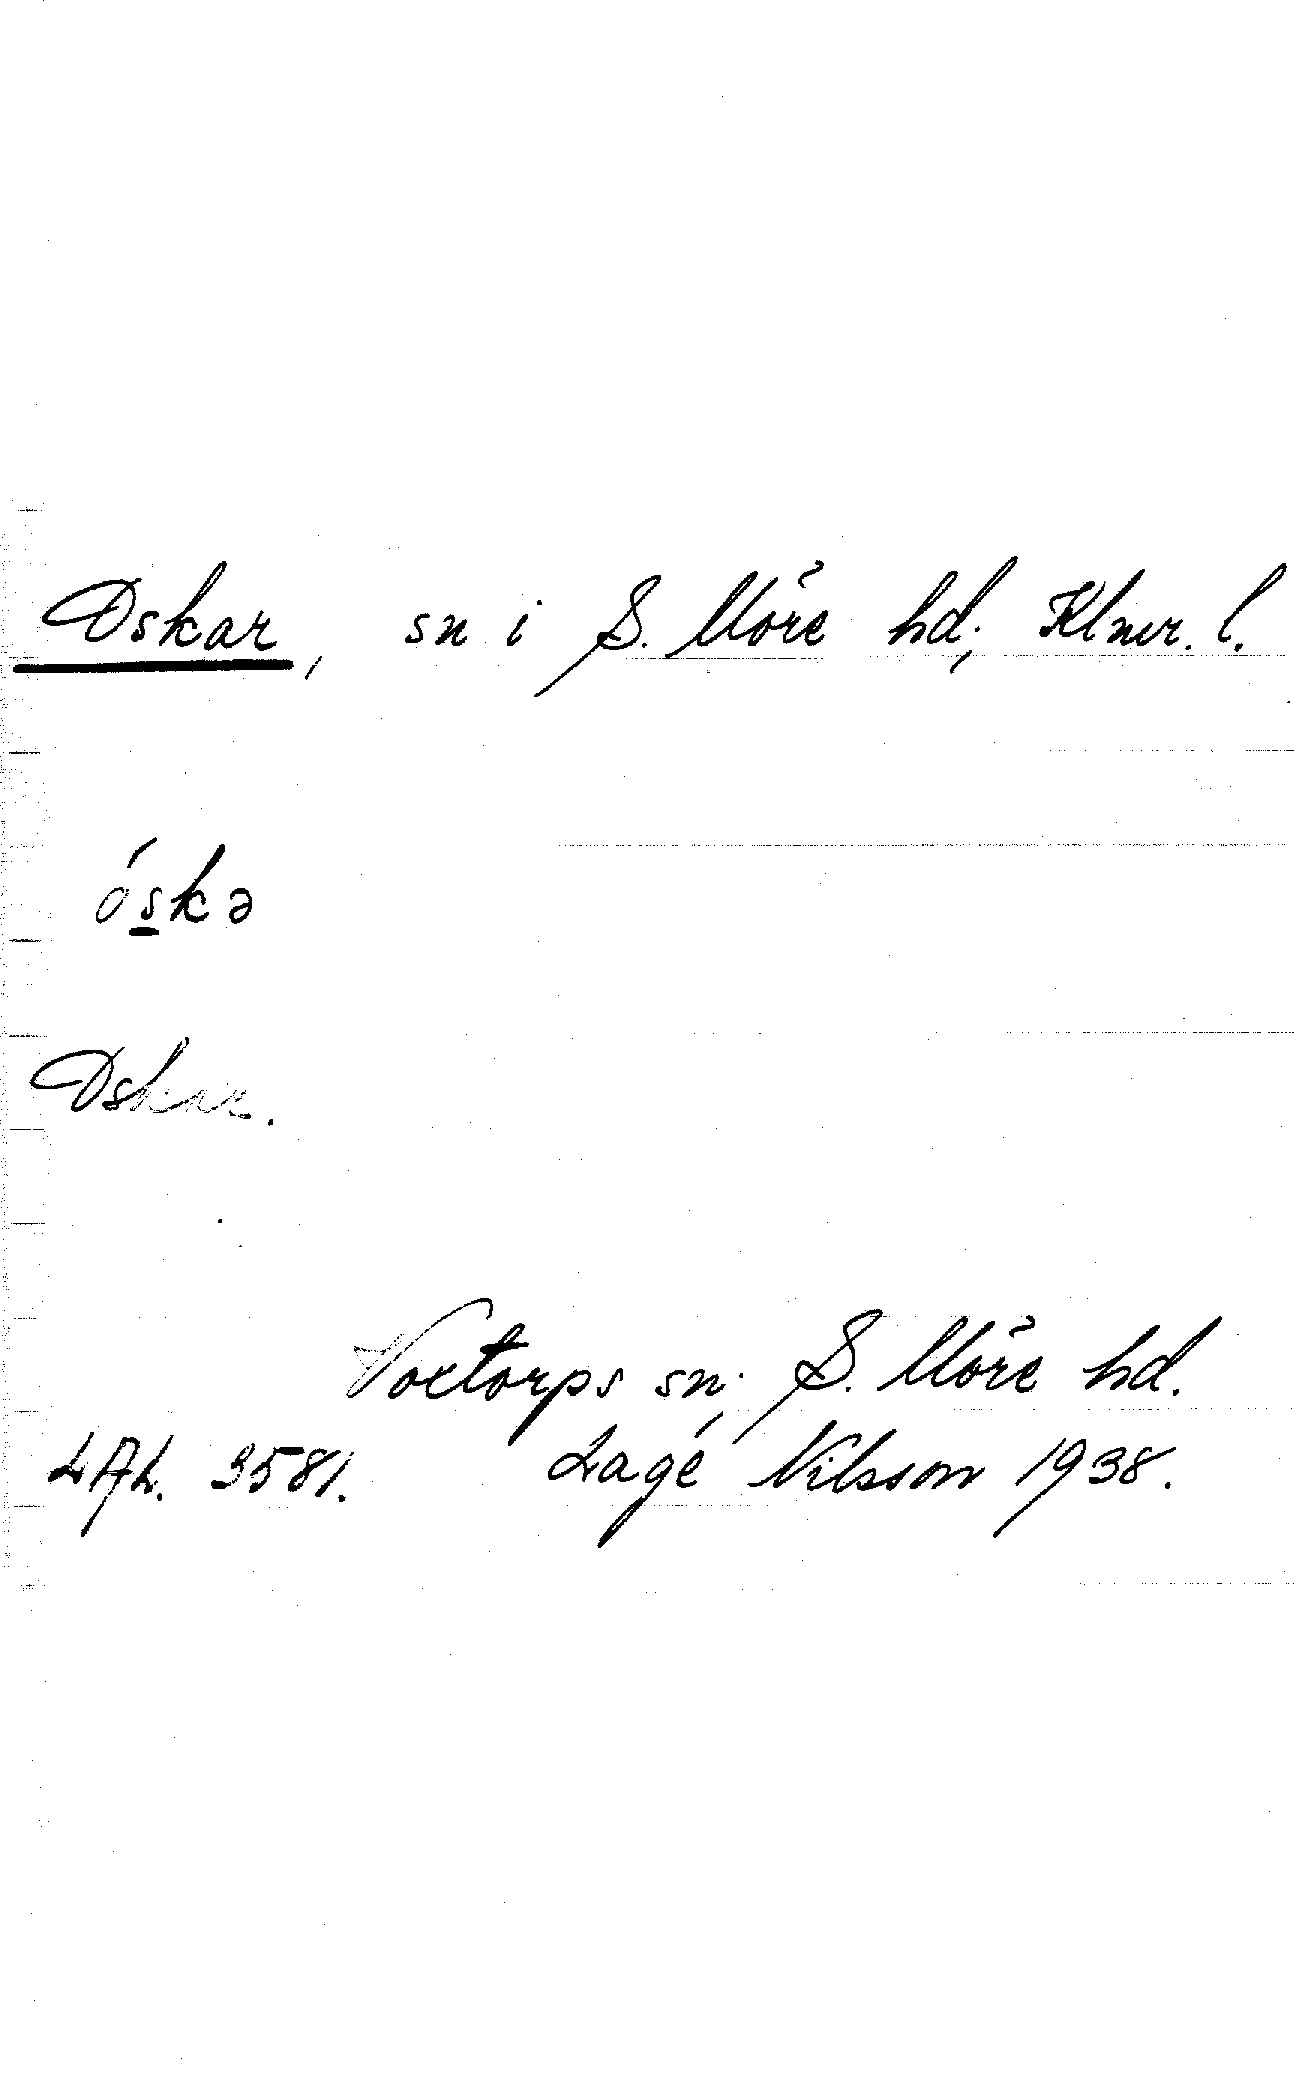 Oskar, sn i S. Möre hd, Klmr. l.
óskə
Oskar.
Voxtorps sn, S. Möre hd.
LAL. 3581. Lagé Nilsson 1938.